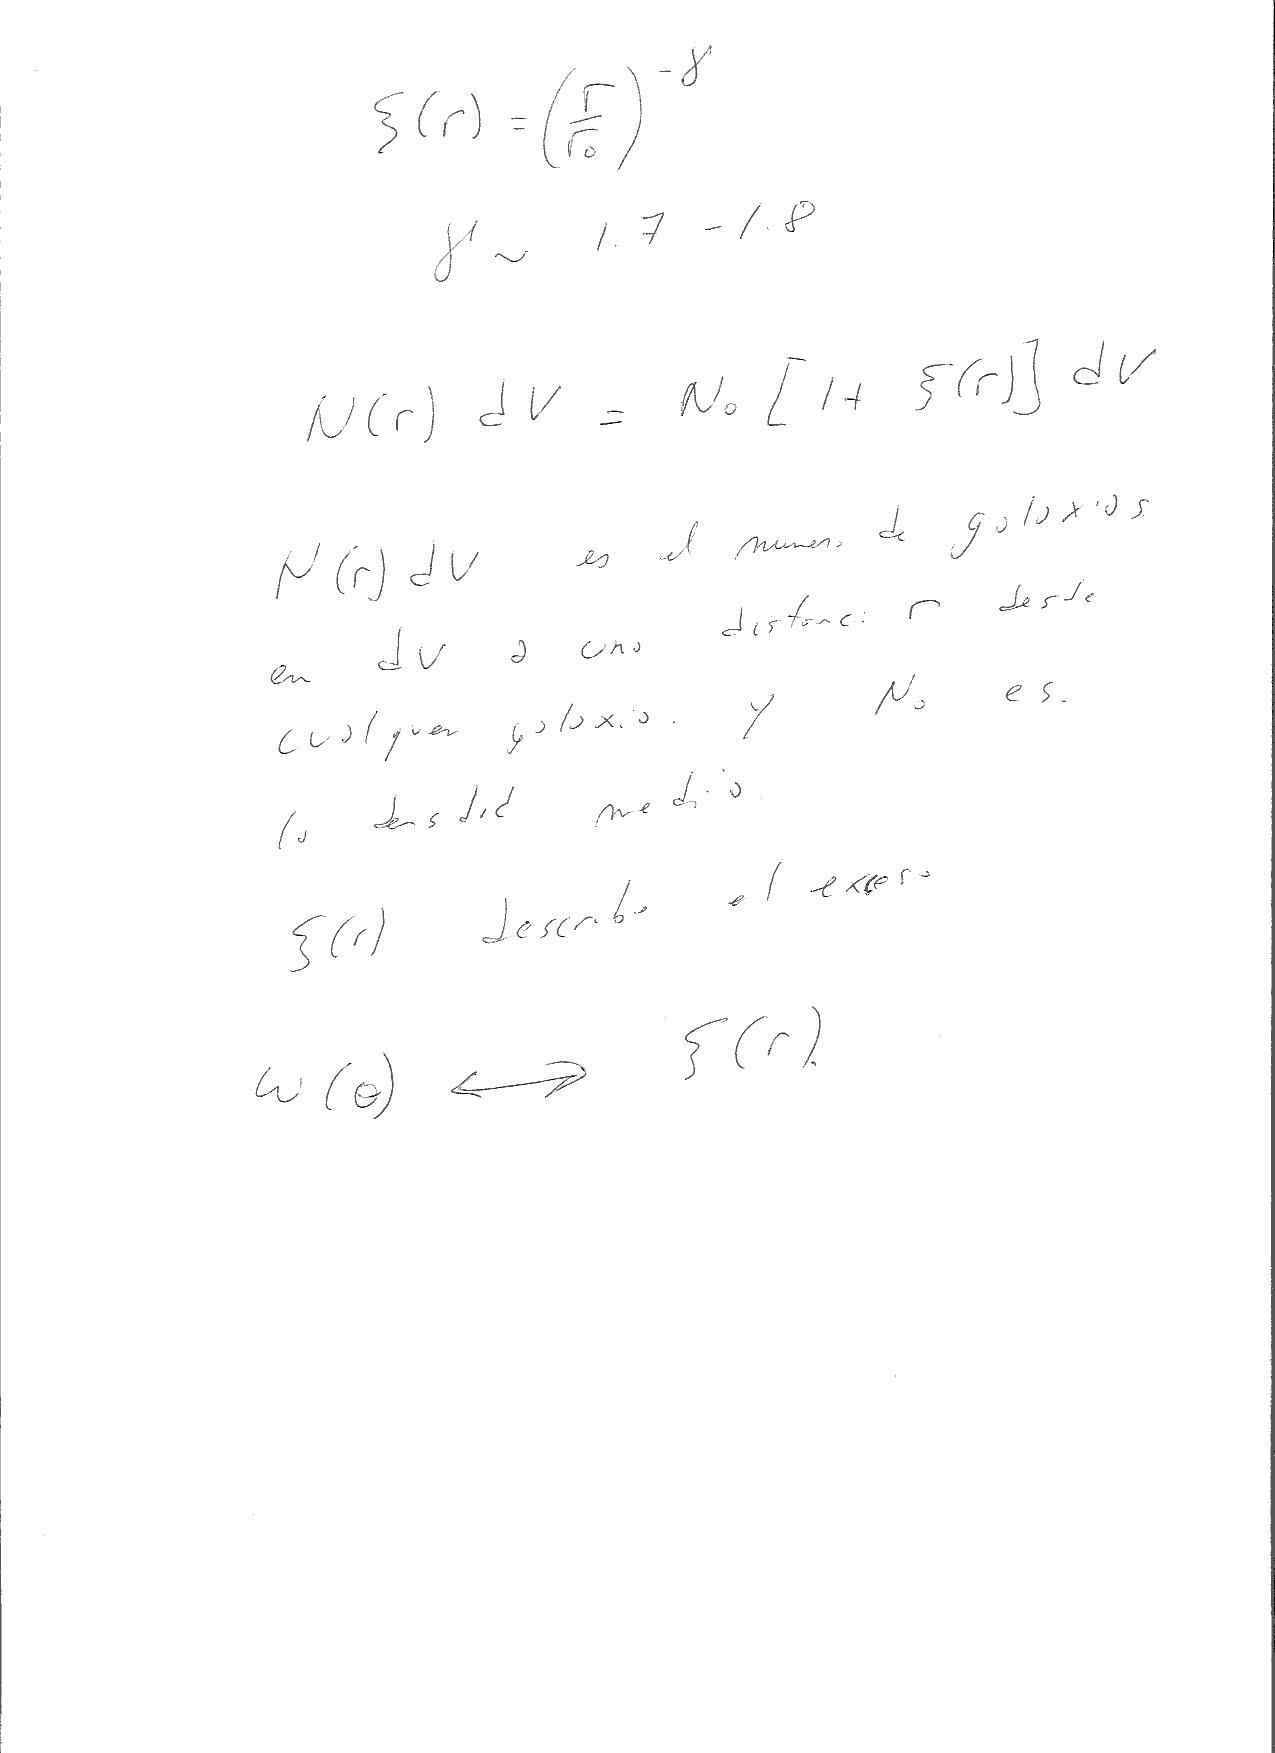 ξ(r) = (r/r₀)^-γ
γ ~ 1.7 - 1.8
N(r) dV = N₀ [1 + ξ(r)] dV
N(r) dV es el numero de galaxias
en dV a una distanci r desde
cualquer galaxia. y N₀ es.
la densdid media.
ξ(r) describe el exceso
w(θ) ⟷ ξ(r).